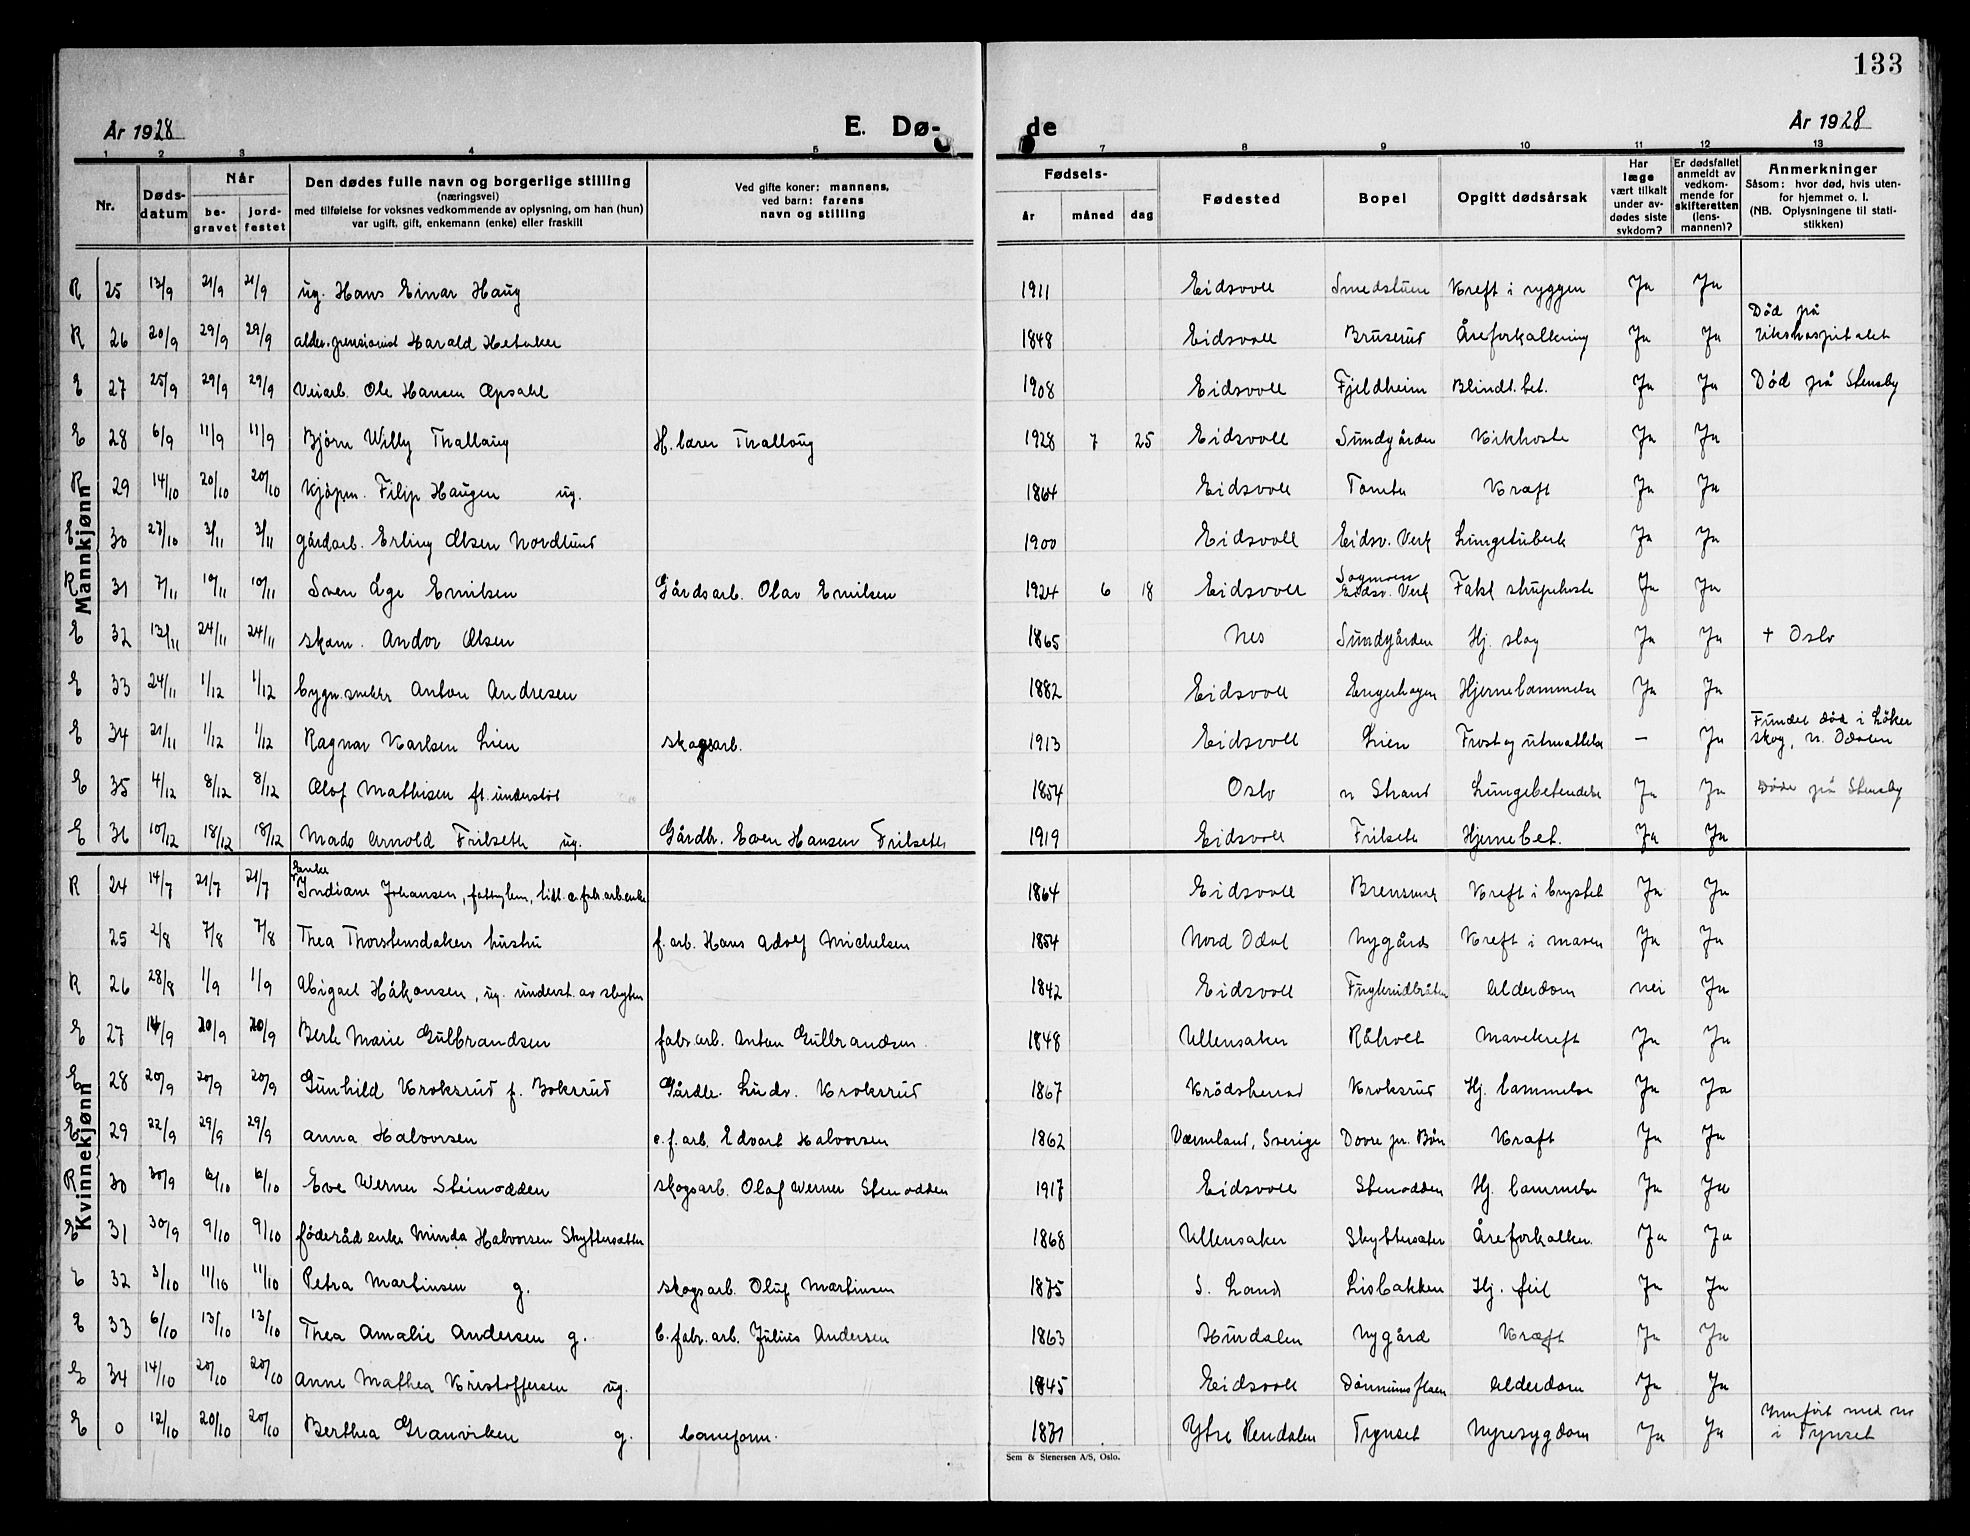 133
År 1928 E. Dø- de År 1928
1 2 3 4 5 7 8 9 10 11 12 13
Nr.
Døds-
datum
Når
be-
gravet
jord-
festet
Den dødes fulle navn og borgerlige stilling
(næringsvei)
med tilføielse for voksnes vedkommende av oplysning, om han (hun)
var ugift, gift, enkemann (enke) eller fraskill
Ved gifte koner: mannens,
ved barn: farens
navn og stilling
Fødsels-
år måned dag
Fødested
Bopel
Opgitt dødsårsak
Har
læge
vært tilkalt
under av-
dødes siste
sykdom?
Er dødsfallet
anmeldt av
vedkom-
mende for
skifteretten
(lens-
mannen)?
Anmerkninger
Såsom: hvor død, hvis uten-
for hjemmet o. l.
(NB. Oplysningene til stati-
stikken)
Mannkjønn
R 25 13/9 21/9 21/9 ug. Hans Einar Haug 1911 Eidsvoll Smedstuen Kreft i ryggen Ja Ja
R 26 20/9 29/9 29/9 alder.pensionist Harald 1848 Eidsvoll Bruserud Åreforkalkning Ja Ja Død på Rikshospitalet
E 27 25/9 29/9 29/9 Veiarb. Ole Hansen Opsahl 1908 Eidsvoll Fjeldheim Blindt.bet. Ja Ja Død på Stensby
E 28 6/9 11/9 11/9 Bjørn Willy Thallaug H. lærer Thallaug 1928 7 25 Eidsvoll Sundgården Kikhoste Ja Ja
R 29 14/10 20/10 20/10 Kjøpm. Filip Haugen ug. 1864 Eidsvoll Tomta Kræft Ja Ja
E 30 27/10 3/11 3/11 gårdarb. Erling Olsen Nordlund 1900 Eidsvoll Eidsv. Verk Lungetuberk Ja Ja
R 31 7/11 10/11 10/11 Sven Åge Emilsen Gårdsarb. Olav Emilsen 1924 6 18 Eidsvoll Eidsv. Verk Falsk strupehoste Ja Ja
E 32 13/11 24/11 24/11 skom. Andor Olsen 1865 Nes Sundgården Hj. slag Ja Ja + Oslo
E 33 24/11 1/12 1/12 bygn.snekker Anton Andresen 1882 Eidsvoll Engerhagen Hjernelammelse Ja Ja
E 34 21/11 1/12 1/12 Ragnar Karlsen Lien skogsarb. 1913 Eidsvoll Lien Frost og utmattelse — Ja Fundet død i Löker skog, n. Odalen
E 35 4/12 8/12 8/12 Olof Mathisen ft. understøt 1854 Oslo n Strand Lungebetendelse Ja Ja Døde på Stensby
E 36 10/12 18/12 18/12 Mads Arnold Frilseth ug. Gårdbr. Even Hansen Frilseth 1919 Eidsvoll Frilseth Hjernebet. Ja Ja
Kvinnekjønn
R 24 14/7 21/7 21/7 Enke Indiane Johansen, fattiglem, tidl. e. fabr.arb.enke 1864 Eidsvoll Kreft i brystet Ja Ja
25 2/8 7/8 7/8 Thea Thorstensdakens hustru f. arb. Hans Adolf Michelsen 1854 Nord Odal Nygårds Kreft i maven Ja Ja
R 26 28/8 1/9 1/9 Abigael Håkonsen, ug. underst. av slegten 1842 Eidsvoll Alderdom nei Ja
E 27 14/9 20/9 20/9 Berte Marie Gulbrandsen fabr.arb. Anton Gulbrandsen. 1848 Ullensaker Råholt Mavekreft Ja Ja
E 28 20/9 20/9 20/9 Gunhild Kroksrud f. Bokerud Gårdbr. Ludv. Kroksrud 1867 Krødsherad Kroksrud Hj. lammelse Ja Ja
E 29 22/9 29/9 29/9 Anna Halvorsen e. f. arb. Edvart Halvorsen 1862 Værmland, Sverige Dovre pr. Bøn Kræft Ja Ja
R 30 30/9 6/10 6/10 Eve Werner Steinodden skogsarb. Olaf Werner Stenodden 1917 Eidsvoll Stenodden Hj. lammelse Ja Ja
E 31 30/9 9/10 9/10 føderåd enke Minda Halvorsen Skyttersæter 1868 Ullensaker Skyttersæter Åreforkalkn. Ja Ja
E 32 3/10 11/10 11/10 Petra Martinsen g. skogsarb. Oluf Martinsen 1875 S. Land Lisbakken Hj. feil Ja Ja
E 33 6/10 13/10 13/10 Thea Amalie Andersen g. b. fabr. arb. Julius Andersen 1863 Hurdalen Nygård Kræft Ja Ja
E 34 14/10 20/10 20/10 Anne Mathea Kristoffersen ug. 1845 Eidsvoll Alderdom Ja Ja
E 0 12/10 20/10 20/10 Berthea Granviken g. baneform. 1871 Ytre Rendalen Tynset Nyresygdom Ja Ja Innført med nr i Tynset
Sem & Stenersen A/S, Oslo.